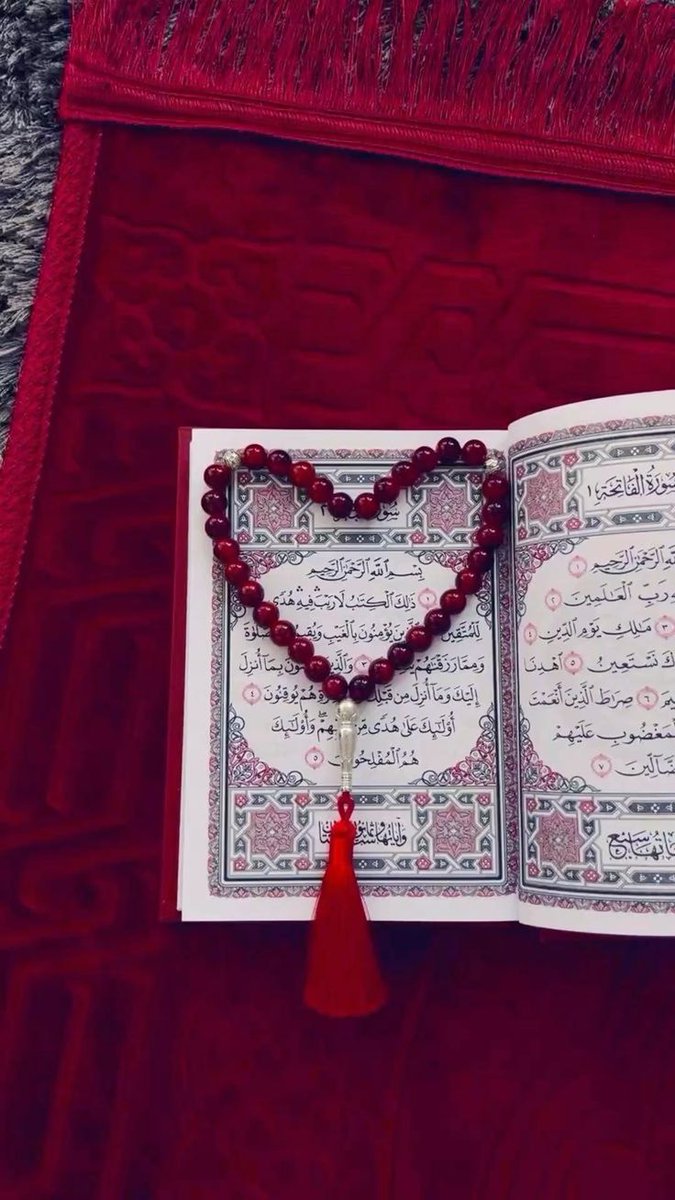 سُورَةُ الْفَاتِحَةِ ١
اللَّهِ الرَّحْمَٰنِ الرَّحِيمِ ١
رَبِّ الْعَالَمِينَ ٢
٣ مَالِكِ يَوْمِ الدِّينِ ٤
نَسْتَعِينُ ٥ اهْدِنَا
٦ صِرَاطَ الَّذِينَ أَنْعَمْتَ
الْمَغْضُوبِ عَلَيْهِمْ
الضَّالِّينَ ٧
سَبْعٌ
سُورَةُ
بِسْمِ اللَّهِ الرَّحْمَٰنِ الرَّحِيمِ
١ ذَٰلِكَ الْكِتَٰبُ لَا رَيْبَ فِيهِ هُدًى
لِلْمُتَّقِينَ يُؤْمِنُونَ بِالْغَيْبِ الصَّلَوٰةَ
وَمِمَّا رَزَقْنَٰهُمْ ٣ وَالَّذِينَ يُؤْمِنُونَ بِمَا أُنْزِلَ
إِلَيْكَ وَمَا أُنْزِلَ مِنْ هُمْ يُوقِنُونَ ٤
أُولَٰئِكَ عَلَىٰ هُدًى مِنْ وَأُولَٰئِكَ
هُمُ الْمُفْلِحُونَ ٥
وَآيَاتُهَا